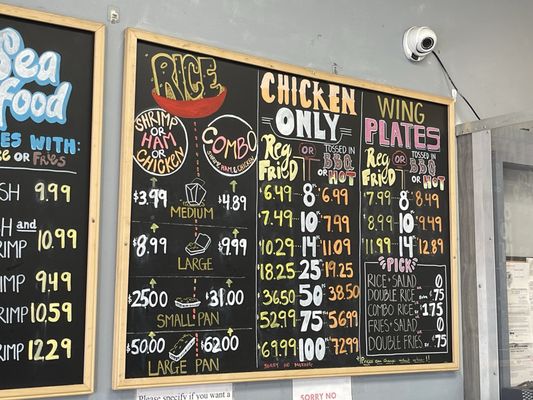 Sea
food
WITH:
OR Fries
9.99
and
10.99
9.49
10.59
12.29
RICE
SHRIMP
OR
HAM
OR
CHICKEN
COMBO
HAM & CHICKEN
$3.99 MEDIUM $4.89
$8.99 LARGE $9.99
$25.00 SMALL PAN $31.00
$50.00 LARGE PAN $62.00
CHICKEN
ONLY
Reg Fried OR TOSSED IN BBQ OR HOT
6.49 8 6.99
7.49 10 7.99
10.29 14 11.09
18.25 25 19.25
36.50 50 38.50
52.99 75 56.99
69.99 100 72.99
SORRY NO MIXING
WING
PLATES
Reg Fried OR TOSSED IN BBQ OR HOT
7.99 8 8.49
8.99 10 9.49
11.99 14 12.89
PICK
RICE + SALAD 0
DOUBLE RICE .75
COMBO RICE $1.75
FRIES + SALAD 0
DOUBLE FRIES .75
Please specify if you want a
SORRY NO